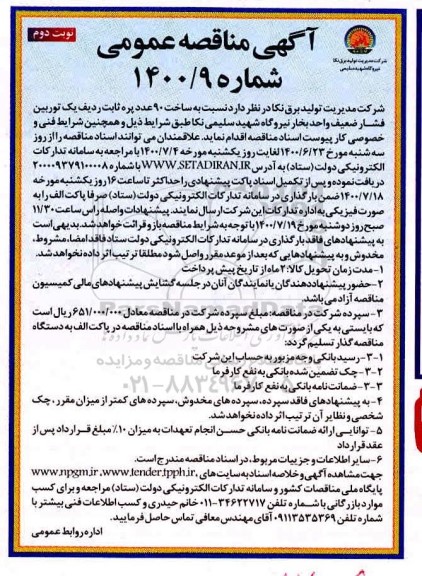 نوبت دوم
آگهی مناقصه عمومی
شماره ۱۴۰۰/۹
شرکت مدیریت تولید برق نکا
نیروگاه شهید سلیمی
شرکت مدیریت تولید برق نکا در نظر دارد نسبت به ساخت ۹۰ عدد پره ثابت ردیف یک توربین
فشار ضعیف واحد بخار نیروگاه شهید سلیمی نکا طبق شرایط ذیل و همچنین شرایط فنی و
خصوصی کار پیوست اسناد مناقصه اقدام نماید. علاقمندان می توانند اسناد مناقصه را از روز
سه شنبه مورخ ۱۴۰۰/۶/۲۳ لغایت روز یکشنبه مورخه ۱۴۰۰/۷/۴ با مراجعه به سامانه تدارکات
الکترونیکی دولت (ستاد) به آدرس WWW.SETADIRAN.IR با شماره ۲۰۰۰۰۹۳۷۹۱۰۰۰۰۰۸
دریافت نموده و پس از تکمیل اسناد پاکت پیشنهادی را حداکثر تا ساعت ۱۶ روز یکشنبه مورخه
۱۴۰۰/۷/۱۸ ضمن بارگذاری در سامانه تدارکات الکترونیکی دولت (ستاد) صرفا پاکت الف را به
صورت فیزیکی به اداره تدارکات این شرکت ارسال نمایند. پیشنهادات واصله راس ساعت ۱۱/۳۰
صبح روز دوشنبه مورخ ۱۴۰۰/۷/۱۹ با توجه به شرایط مناقصه باز و قرائت خواهد شد. بدیهی است
به پیشنهادهای فاقد بارگذاری در سامانه تدارکات الکترونیکی دولت ستاد فاقد امضا، مشروط،
مخدوش و به پیشنهادهایی که بعد از موعد مقرر واصل شود مطلقا ترتیب اثر داده نخواهد شد.
۱- مدت زمان تحویل کالا: ۲ ماه از تاریخ پیش پرداخت
۲- حضور پیشنهاددهندگان یا نمایندگان آنان در جلسه گشایش پیشنهادهای مالی کمیسیون
مناقصه آزاد می باشد.
۳- سپرده شرکت در مناقصه: مبلغ سپرده شرکت در مناقصه معادل ۶۵۱/۰۰۰/۰۰۰ ریال است
که بایستی به یکی از صورت های مشروحه ذیل همراه با اسناد مناقصه در پاکت الف به دستگاه
مناقصه گذار تسلیم گردد:
۳-۱- رسید بانکی وجه مزبور به حساب این شرکت
۳-۲- چک تضمین شده بانکی به نفع کارفرما
۳-۳- ضمانت نامه بانکی به نفع کارفرما
۴- به پیشنهادهای فاقد سپرده، سپرده های مخدوش، سپرده های کمتر از میزان مقرر، چک
شخصی و نظایر آن ترتیب اثر داده نخواهد شد.
۵- توانایی ارائه ضمانت نامه بانکی حسن انجام تعهدات به میزان ۱۰٪ مبلغ قرارداد پس از
عقد قرارداد
۶- سایر اطلاعات و جزییات مربوط، در اسناد مناقصه مندرج است.
جهت مشاهده آگهی و خلاصه اسناد به سایت های www.npgm.ir ,www.tender.tpph.ir،
پایگاه ملی مناقصات کشور و سامانه تدارکات الکترونیکی دولت (ستاد) مراجعه و برای کسب
موارد بازرگانی با شماره تلفن ۳۴۶۲۲۷۱۷-۰۱۱ خانم حیدری و کسب اطلاعات فنی بیشتر با
شماره تلفن ۰۹۱۱۳۵۳۵۳۶۹ آقای مهندس معافی تماس حاصل فرمایید.
اداره روابط عمومی